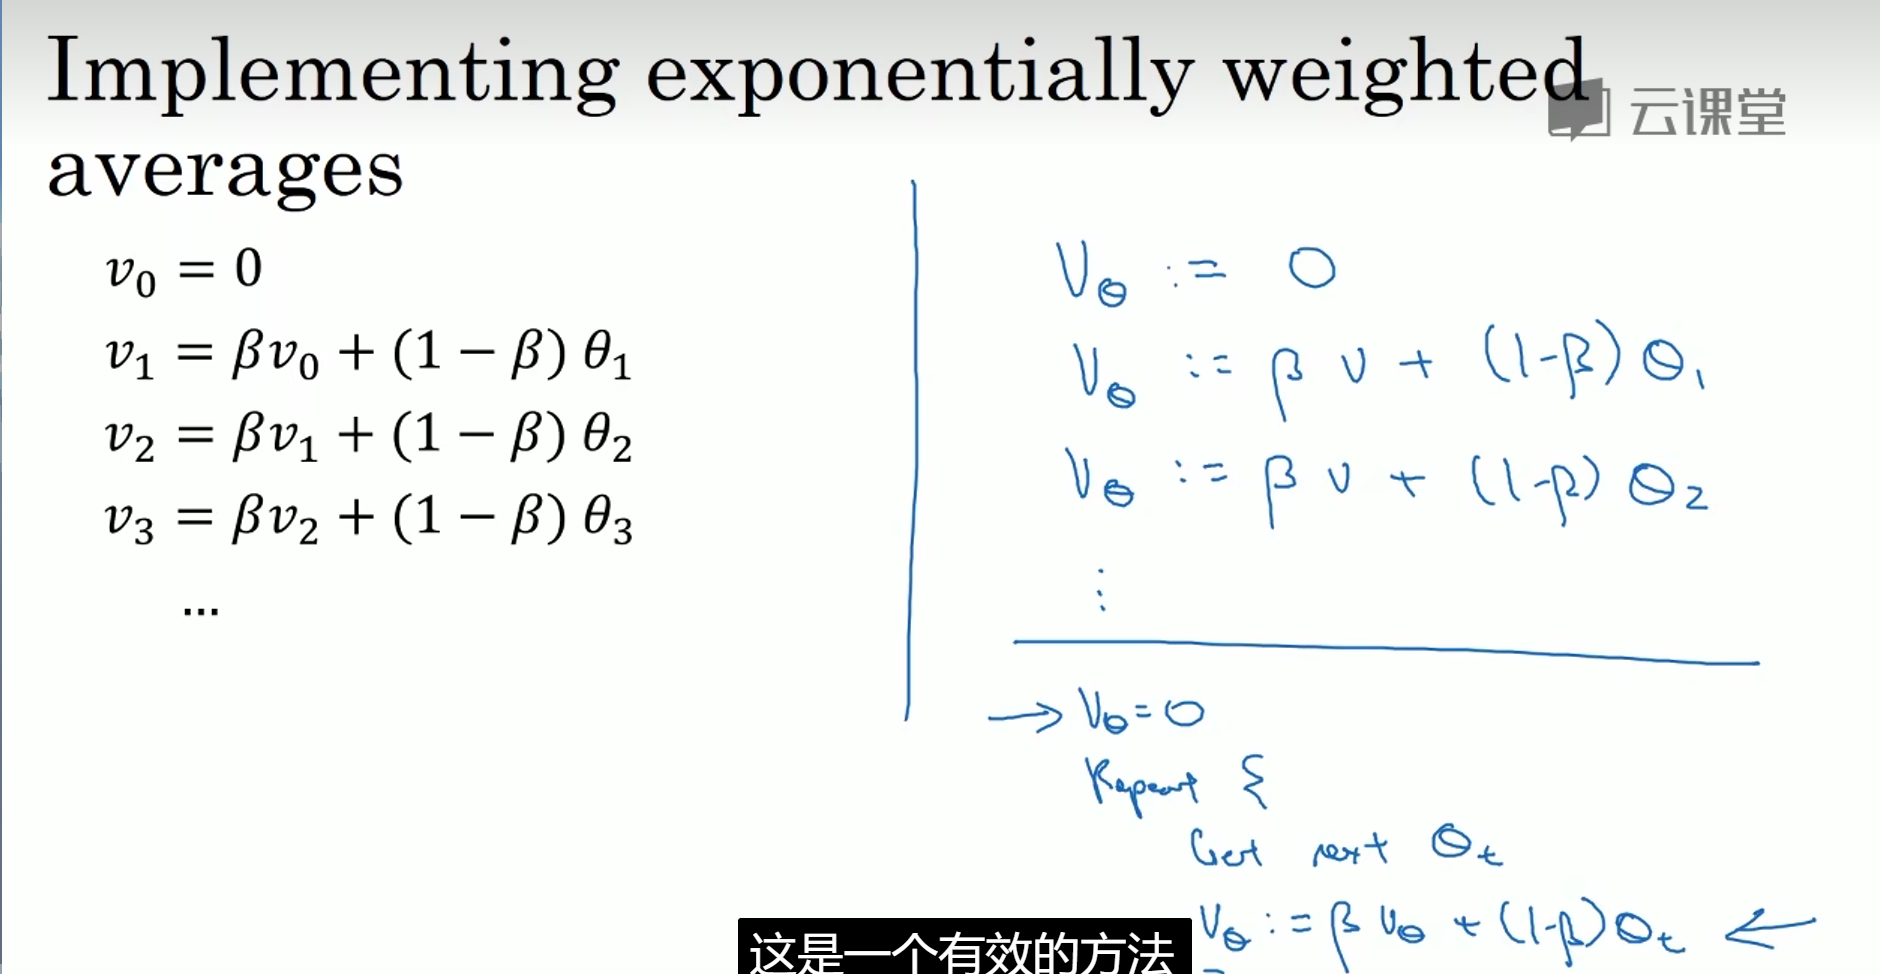 Implementing exponentially weighted
averages
云课堂
v₀ = 0
v₁ = βv₀ + (1 − β) θ₁
v₂ = βv₁ + (1 − β) θ₂
v₃ = βv₂ + (1 − β) θ₃
...
V_θ := 0
V_θ := β v + (1-β) θ₁
V_θ := β v + (1-β) θ₂
⋮
→ V_θ = 0
Repeat {
Get next θ_t
V_θ := β V_θ + (1-β) θ_t ←
这是一个有效的方法